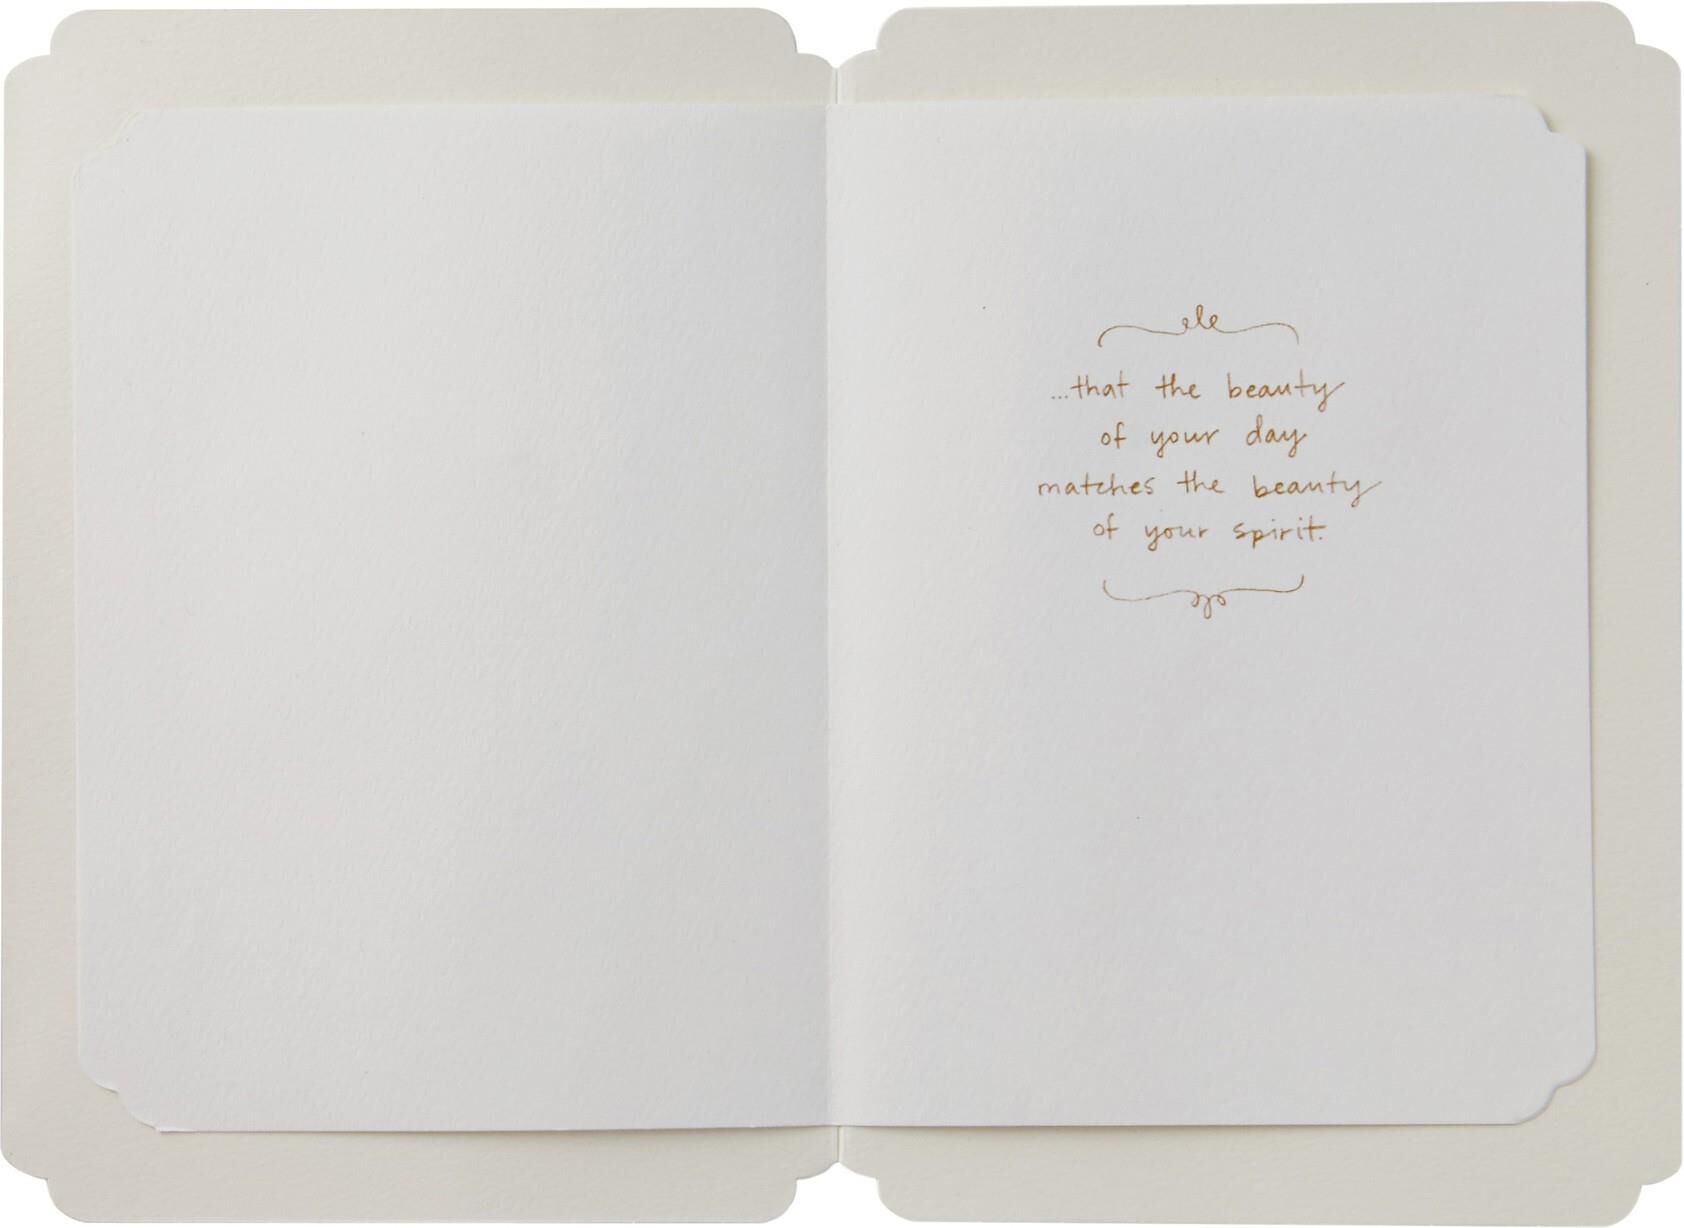 ...that the beauty
of your day
matches the beauty
of your spirit.